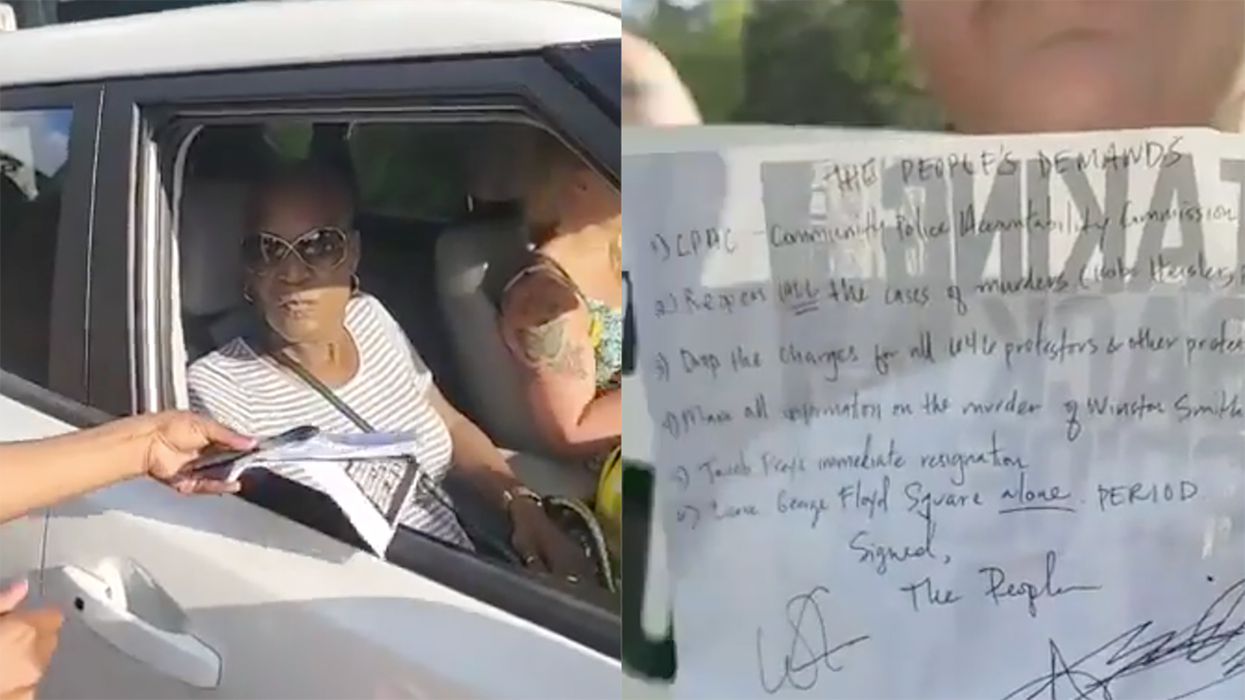 THE PEOPLE'S DEMANDS
1) CPAC - Community Police Accountability Commission
2.) Reopen ALL the cases of murders
3) Drop the charges for all 646 protestors & other
4) Make all information on the murder of Winston Smith
5) Jacob Freys immediate resignation
6) Leave George Floyd Square alone. PERIOD
Signed,
The People
TAKING